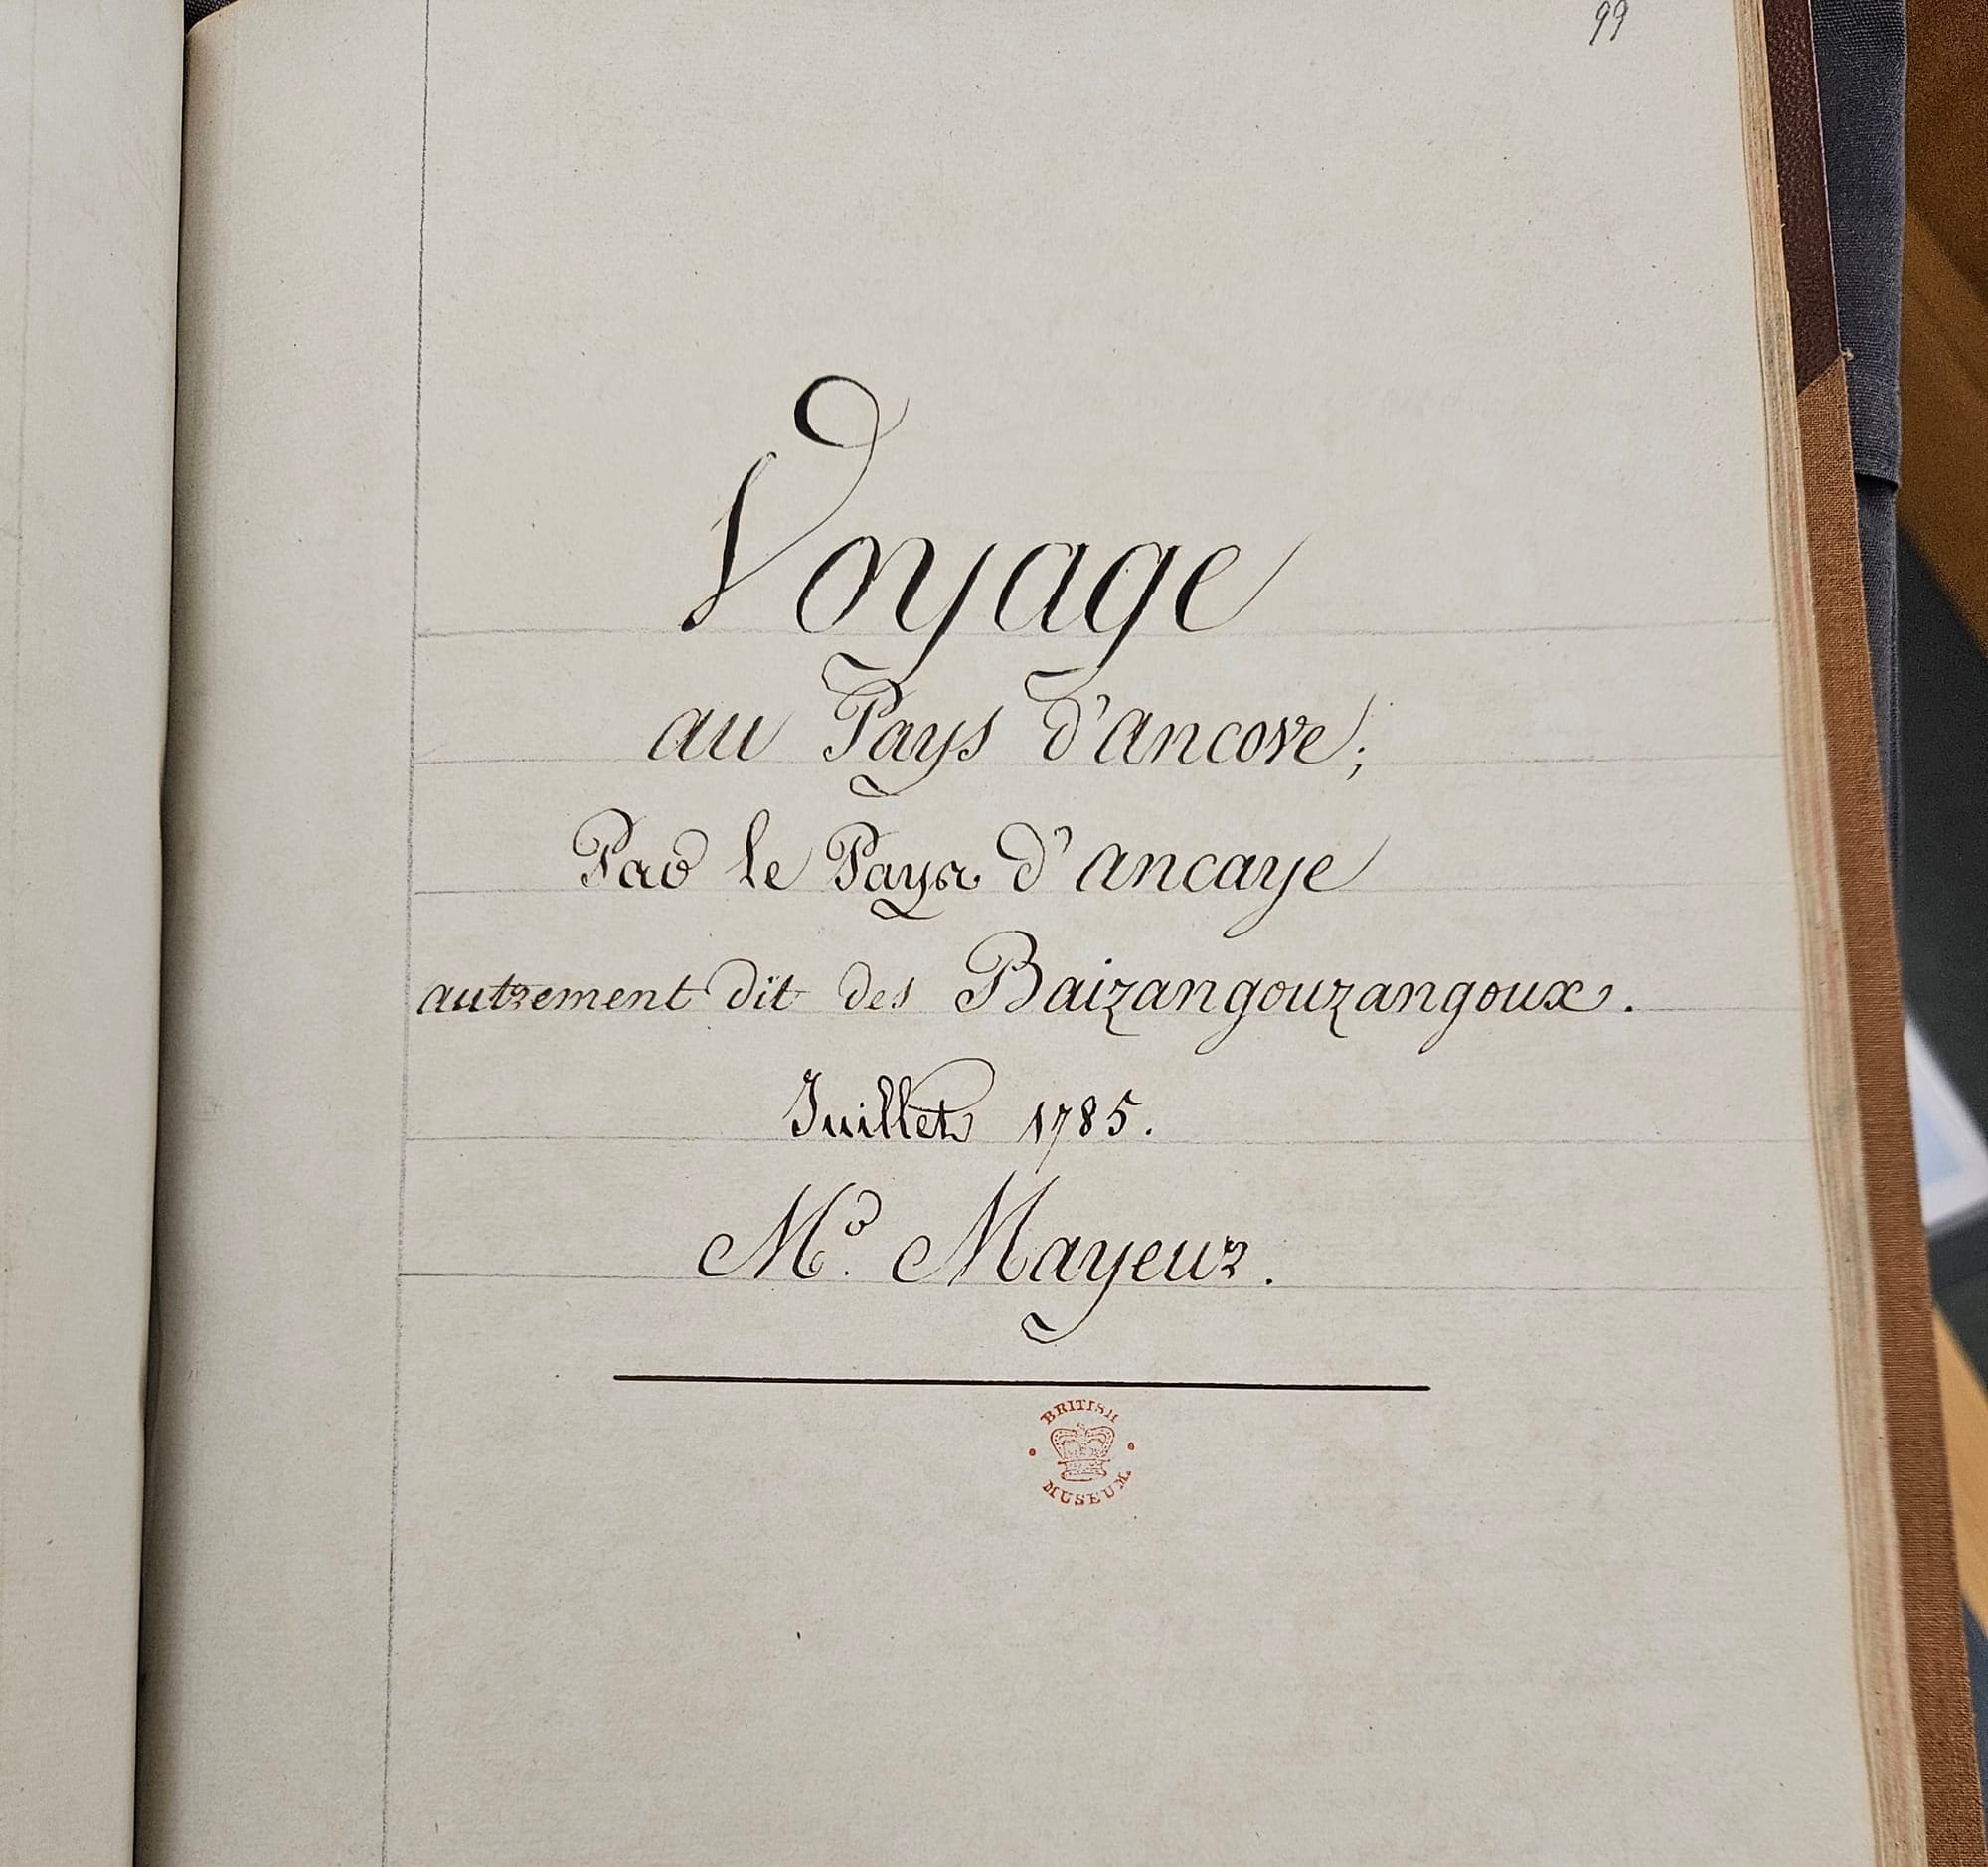 99
Voyage
au Pays d'ancove;
Par le Pays d'ancaye
autrement dit des Baizangouzangoux.
Juillet 1785.
Mr. Mayeur.
BRITISH
MUSEUM